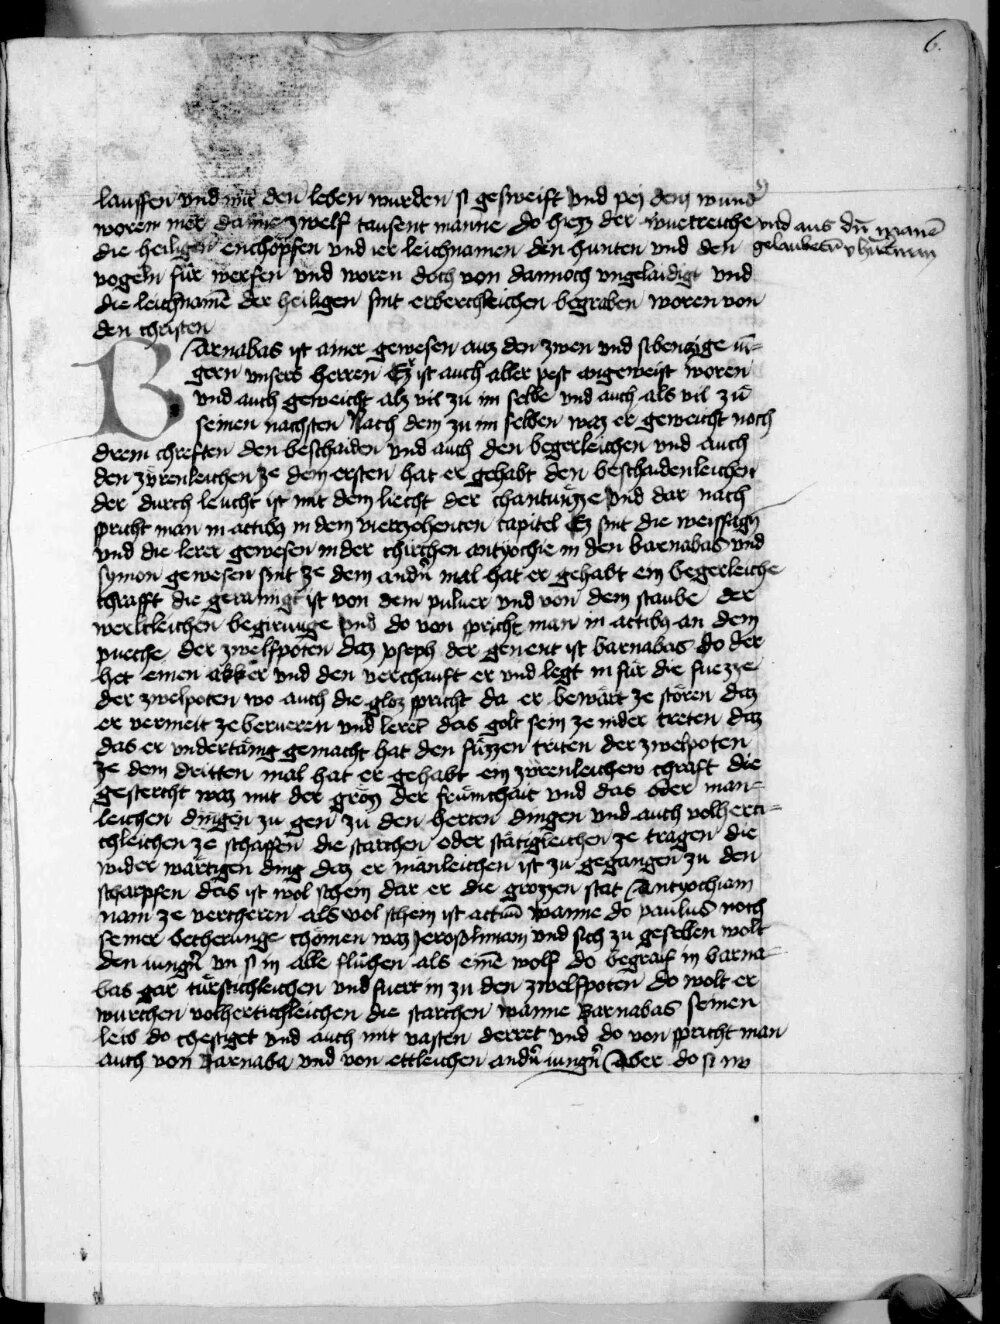 6.
lauffen vnd mit den leben wurden si gesweist vnd pei dem wund
woren mer danne zwelf tausent manne do hiez der wuetreiche
vnd aus dn̄ manē
die heiligen enchopfen vnd ier leichnamen den hunten vnd den
gelaubetn̄
vogeln für werfen vnd woren doch von dannoch vngelaidigt vnd
die leichnamē der heiligen sint erberchleichen begraben woren von
den christen
BArnabas ist ainer gewesen auz den zwen vnd sibenzige iu̅-
gern vnsers herren Er ist auch aller pest angeweist woren
vnd auch geweicht alz vil zu im selbe vnd auch als vil zu
seinen nachsten Nach dem zu im selben waz er geweicht noch
drein chreften den beschaiden vnd auch den begerleichen vnd auch
den zürenleichen ze dem ersten hat er gehabt den beschaidenleichen
der durch leucht ist mit dem liecht der chantnüzze vnd dar nach
spricht man in actibus in dem vierzehenten capitel Ez sint die weissagn̄
vnd die lerer gewesen in der chirchen antyochie in den barnabas vnd
symon gewesen sint ze dem andn̄ mal hat er gehabt ein begerleiche
chrafft die geraingt ist von dem puluer vnd von dem staube der
werltleichen begirunge vnd do von spricht man in actibus an dem
pueche der zwelfpoten daz yseph der genent ist barnabas do der
het einen akker vnd den verchauft er vnd legt in für die fuezze
der zwelpoten wo auch die gloz spricht da er bewärt ze stören daz
er vermeit ze berueren vnd leret das golt sein ze nider treten daz
das er vndertänig gemacht hat den füzzen triten der zwelpoten
ze dem dritten mal hat er gehabt ein zürenleichew chraft die
gestercht waz mit der gröz der früm̄chait vnd das oder man-
leichen dingen zu gen zu den herten dingen vnd auch volherti-
chleichen ze schaffen die starchen oder stätigleichen ze tragen die
wider wärtigen ding daz er manleichen ist zu gegangen zu den
scharpfen das ist wol schein dar er die grozzen stat Antyochiam
nam ze vercheren als wol schein ist actuū wanne do paulus noch
seiner becherunge chömen waz Jerosolimam vnd sich zu gesellen wolt
den iungn̄ vn si in alle fluhen als einē wolf do begraif in barna-
bas gar türstichleichen vnd fuert in zu den zwelfpoten do wolt er
wurchen volhertichleichen die starchen wanne Barnabas seinen
leib do chestiget vnd auch mit vasten derret vnd do von spricht man
auch von Barnaba vnd von ettleichen andn̄ iungn̄ Aber do si nv